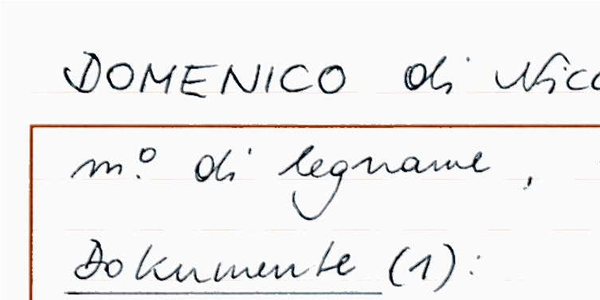 DOMENICO di
m.º di legname,
Dokumente (1):